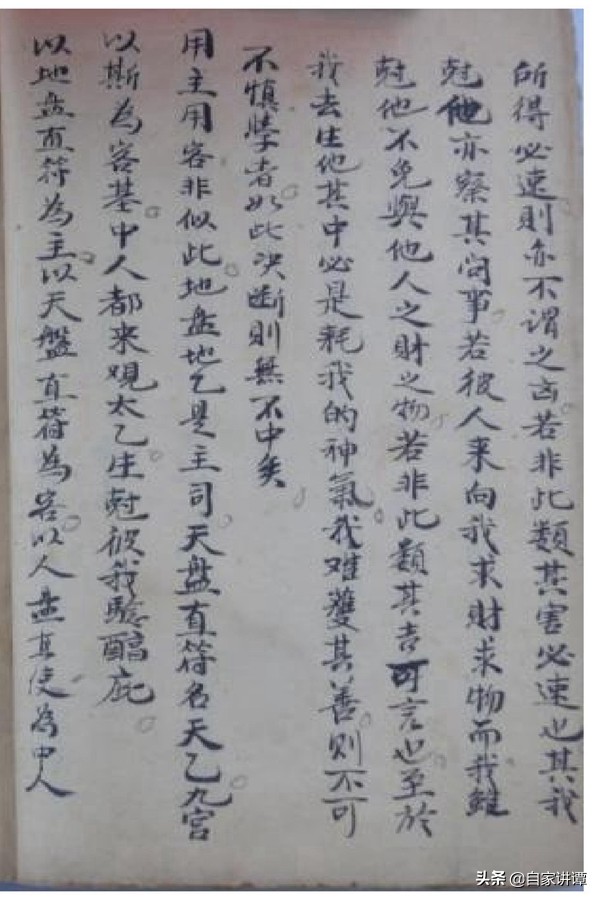 所得必速則亦不謂之凶若非此類其害必速也其我
尅他亦察其问事若彼人来向我求財求物而我雖
尅他不免與他人之財之物若非此類其吉可言也至於
我去生他其中必是耗我的神氣我难獲其善則不可
不慎學者以此决斷則無不中矣
用主用客非似此地盘地乙是主司天盘直符名天乙九宫
以斯為客基中人都来覌太乙生尅彼我騐醕庇
以地盘直符為主以天盤直符為客以人盘直使為中人
头条 @自家讲谭